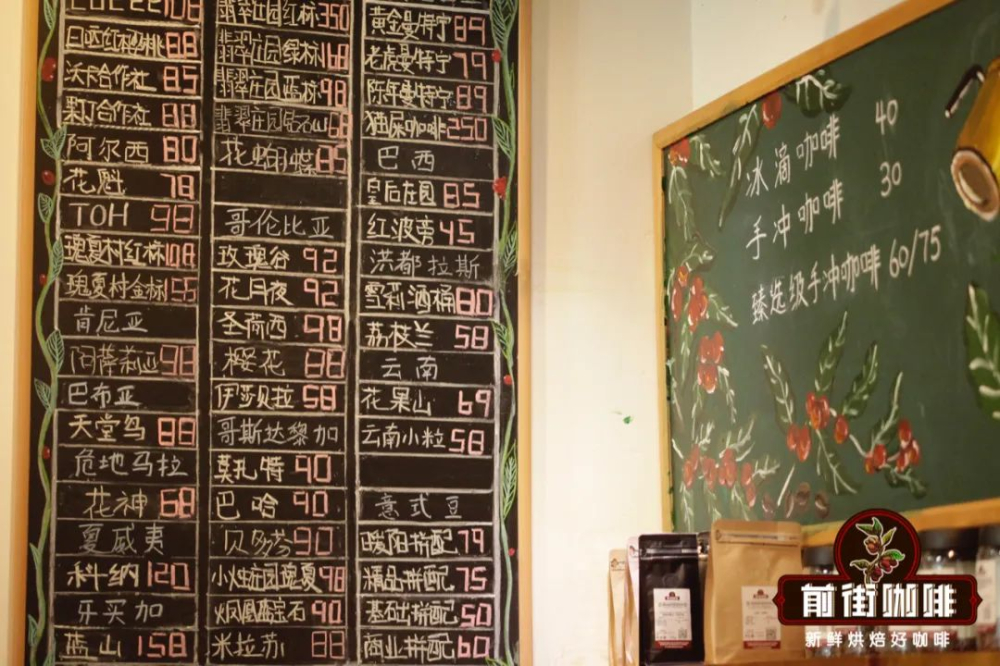 日晒红樱桃 88
沃卡合作社 85
果丁合作社 88
阿尔西 80
花魁 78
TOH 98
瑰夏村红标 108
瑰夏村金标 155
肯尼亚
阿萨莉亚 98
巴布亚
天堂鸟 88
危地马拉
花神 68
夏威夷
科纳 120
牙买加
蓝山 158
翡翠庄园红标 350
翡翠庄园绿标 168
翡翠庄园蓝标 98
翡翠庄园钻石山 68
花蝴蝶 85
哥伦比亚
玫瑰谷 92
花月夜 92
圣荷西 98
樱花 88
伊莎贝拉 58
哥斯达黎加
莫扎特 90
巴哈 90
贝多芬 90
小烛庄园瑰夏 98
火凤凰蓝宝石 90
米拉苏 88
黄金曼特宁 89
老虎曼特宁 79
陈年曼特宁 89
猫屎咖啡 250
巴西
皇后庄园 85
红波旁 45
洪都拉斯
雪莉酒桶 80
荔枝兰 58
云南
花果山 69
云南小粒 58
意式豆
暖阳拼配 79
精品拼配 75
基础拼配 50
商业拼配 60
冰滴咖啡 40
手冲咖啡 30
臻选级手冲咖啡 60/75
前街咖啡
新鲜烘焙好咖啡